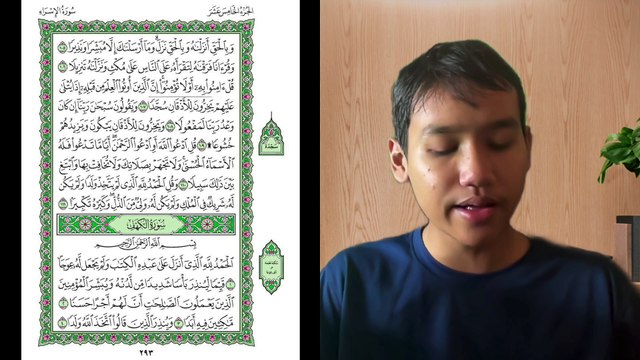 سُورَةُ الإِسۡرَاء
الجُزۡءُ الخَامِسَ عَشَرَ
وَبِٱلۡحَقِّ أَنزَلۡنَٰهُ وَبِٱلۡحَقِّ نَزَلَۗ وَمَآ أَرۡسَلۡنَٰكَ إِلَّا مُبَشِّرٗا وَنَذِيرٗا ١٠٥
وَقُرۡءَانٗا فَرَقۡنَٰهُ لِتَقۡرَأَهُۥ عَلَى ٱلنَّاسِ عَلَىٰ مُكۡثٖ وَنَزَّلۡنَٰهُ تَنزِيلٗا ١٠٦
قُلۡ ءَامِنُواْ بِهِۦٓ أَوۡ لَا تُؤۡمِنُوٓاْۚ إِنَّ ٱلَّذِينَ أُوتُواْ ٱلۡعِلۡمَ مِن قَبۡلِهِۦٓ إِذَا يُتۡلَىٰ
عَلَيۡهِمۡ يَخِرُّونَۤ لِلۡأَذۡقَانِۤ سُجَّدٗاۤ ١٠٧ وَيَقُولُونَ سُبۡحَٰنَ رَبِّنَآ إِن كَانَ
وَعۡدُ رَبِّنَا لَمَفۡعُولٗا ١٠٨ وَيَخِرُّونَ لِلۡأَذۡقَانِ يَبۡكُونَ وَيَزِيدُهُمۡ
خُشُوعٗا۩ ١٠٩ قُلِ ٱدۡعُواْ ٱللَّهَ أَوِ ٱدۡعُواْ ٱلرَّحۡمَٰنَۖ أَيّٗا مَّا تَدۡعُواْ فَلَهُ
ٱلۡأَسۡمَآءُ ٱلۡحُسۡنَىٰۚ وَلَا تَجۡهَرۡ بِصَلَاتِكَ وَلَا تُخَافِتۡ بِهَا وَٱبۡتَغِ
بَيۡنَ ذَٰلِكَ سَبِيلٗا ١١٠ وَقُلِ ٱلۡحَمۡدُ لِلَّهِ ٱلَّذِي لَمۡ يَتَّخِذۡ وَلَدٗا وَلَمۡ يَكُن
لَّهُۥ شَرِيكٞ فِي ٱلۡمُلۡكِ وَلَمۡ يَكُن لَّهُۥ وَلِيّٞ مِّنَ ٱلذُّلِّۖ وَكَبِّرۡهُ تَكۡبِيرَۢا ١١١
سُورَةُ الكَهۡفِ
بِسۡمِ ٱللَّهِ ٱلرَّحۡمَٰنِ ٱلرَّحِيمِ
ٱلۡحَمۡدُ لِلَّهِ ٱلَّذِيٓ أَنزَلَ عَلَىٰ عَبۡدِهِ ٱلۡكِتَٰبَ وَلَمۡ يَجۡعَل لَّهُۥ عِوَجَاۜ
١ قَيِّمٗا لِّيُنذِرَ بَأۡسٗا شَدِيدٗا مِّن لَّدُنۡهُ وَيُبَشِّرَ ٱلۡمُؤۡمِنِينَ
ٱلَّذِينَ يَعۡمَلُونَ ٱلصَّٰلِحَٰتِ أَنَّ لَهُمۡ أَجۡرًا حَسَنٗا ٢
مَّٰكِثِينَ فِيهِ أَبَدٗا ٣ وَيُنذِرَ ٱلَّذِينَ قَالُواْ ٱتَّخَذَ ٱللَّهُ وَلَدٗا ٤
٢٩٣
سَجۡدَة